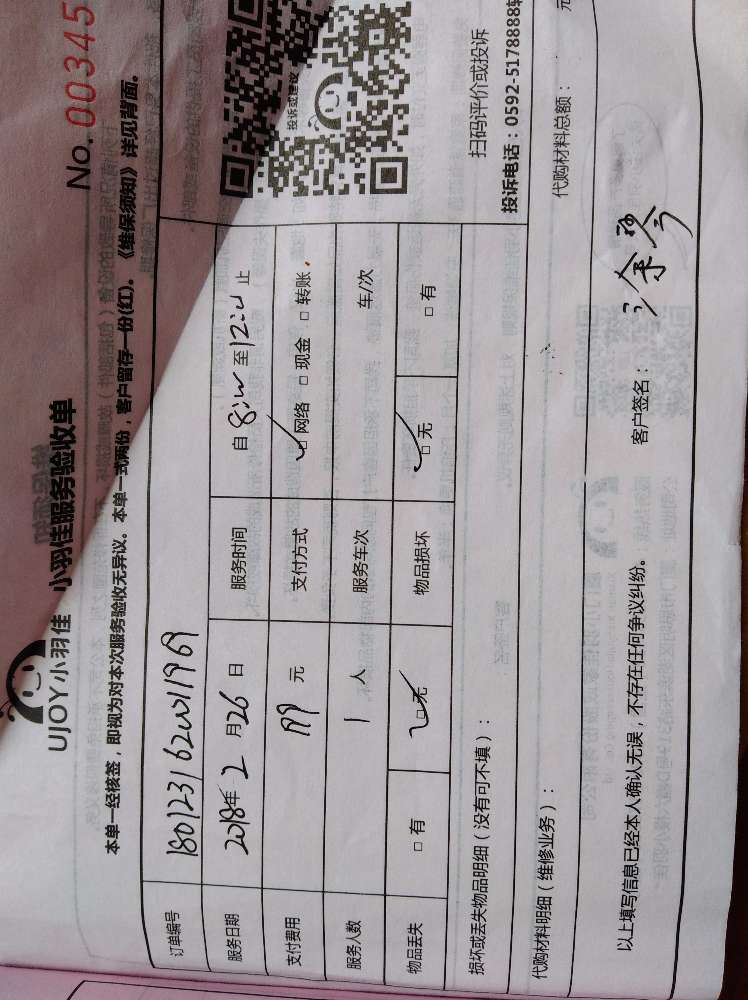 UJOY小羽佳 小羽佳服务验收单
No. 00345
本单一经核签，即视为对本次服务验收无异议。本单一式两份，客户留存一份(红)。《维保须知》详见背面。
订单编号
服务日期 2018年 2 月 26 日 服务时间 自 8:00 至 12:00 止
支付费用 元 支付方式 □ 网络 □ 现金 □ 转账
服务人数 1 人 服务车次 车/次
物品丢失 □ 有 □ 无 物品损坏 □ 无 □ 有
投诉或建议
扫码评价或投诉
投诉电话：0592-5178888转
损坏或丢失物品明细（没有可不填）：
代购材料明细（维修业务）： 代购材料总额： 元
以上填写信息已经本人确认无误，不存在任何争议纠纷。 客户签名：